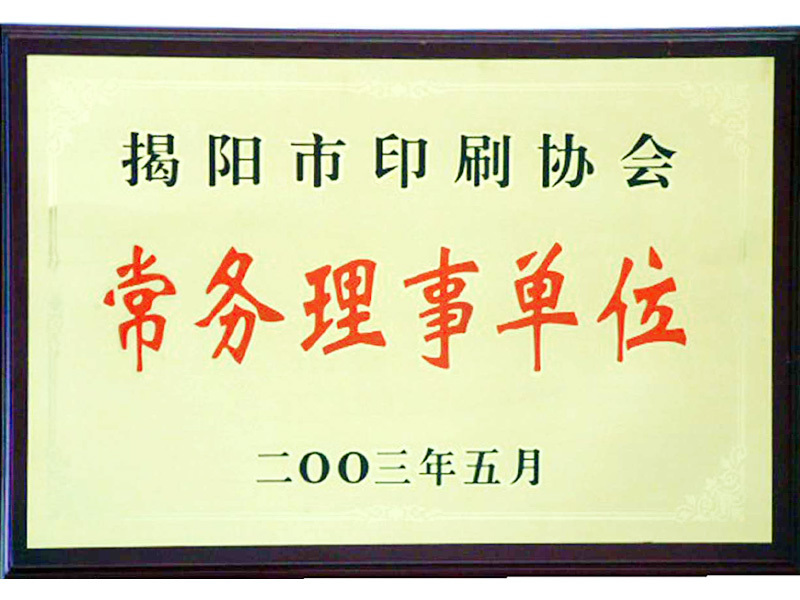 揭阳市印刷协会
常务理事单位
二OO三年五月